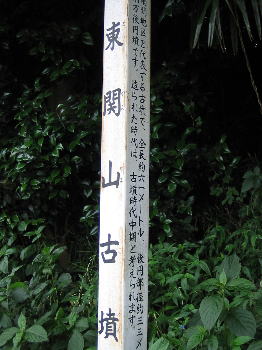 東関山古墳
地区を代表する古墳で、全長約六一メートル、後円部径約三二メ
方後円墳です。造られた時代は、古墳時代中期と考えられます。